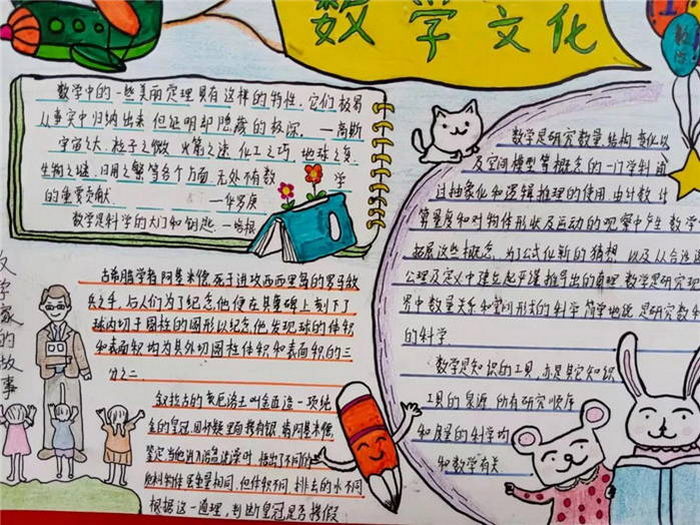 数学文化
数学中的一些美丽定理具有这样的特性，它们极易
从事实中归纳出来，但证明却隐藏的极深。 —高斯
宇宙之大，粒子之微，火箭之速，化工之巧，地球之变，
生物之谜，日用之繁等各个方面，无处不有数学
的重要贡献 —华罗庚
数学是科学的大门和钥匙 —培根
数学是研究数量、结构、变化以
及空间模型等概念的一门学科，通
过抽象化和逻辑推理的使用，由计数、计
算、量度和对物体形状及运动的观察中产生，数学
拓展这些概念，为了公式化新的猜想，以及从合适选
公理及定义中建立起严谨推导出的真理，数学是研究现
界中数量关系和空间形式的科学，简单地说，是研究数和
的科学
数学是知识的工具，亦是其它知识
工具的泉源，所有研究顺序
和度量的科学均
和数学有关
学家的故事
古希腊学者阿基米德，死于进攻西西里岛的罗马敌
兵之手，与人们为了纪念他便在其墓碑上刻下了
球内切于圆柱的图形以纪念他发现球的体积
和表面积均为其外切圆柱体积和表面积的三
分之二
叙拉古的亥厄洛王叫金匠造一顶纯
金的皇冠，因怀疑里面掺有银，请阿基米德
鉴定，当他进入浴盆洗澡时，悟出了不同的
质料物体虽重量相同，但体积不同，排去的水不同
根据这一道理，判断皇冠是否掺假